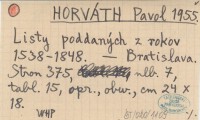 HORVÁTH Pavol 1955.
Listy poddaných z rokov
1538-1848. — Bratislava.
Stran 375, nlb. 7,
tabl. 15, opr., obwr., cm 24 x
18.
WHP